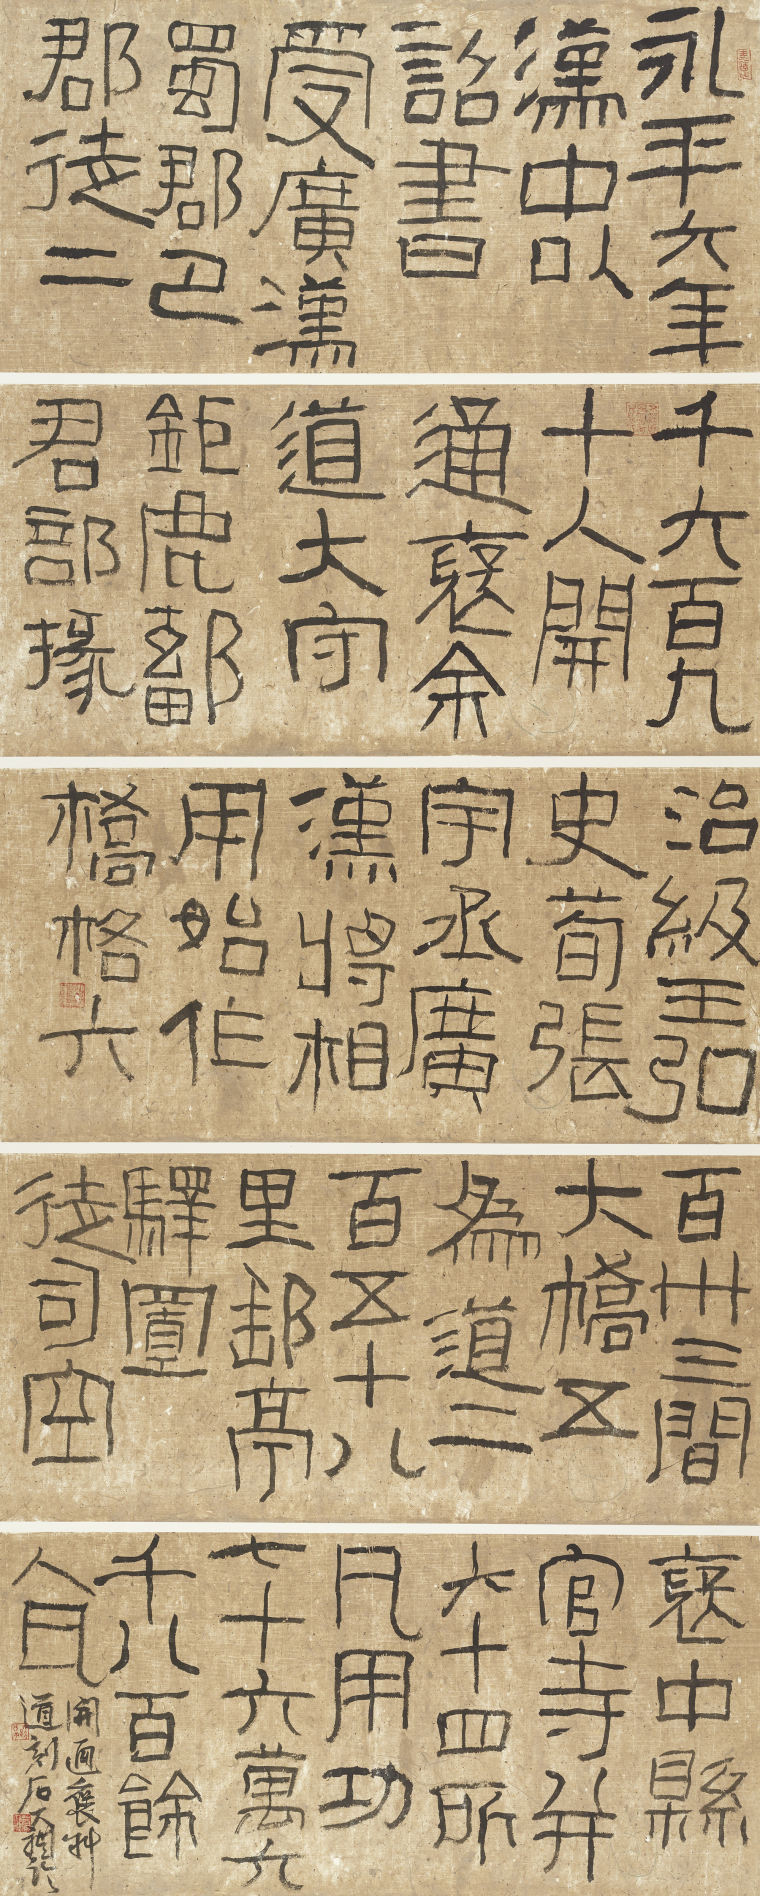 永平六年
漢中以
詔書
受廣漢
蜀郡巴
郡徒二
千六百九
十人開
通褒余
道大守
鉅鹿鄐
君部掾
治級王弘
史荀張
宇丞廣
漢將相
用始作
橋格六
百卅三間
大橋五
為道二
百五十八
里郵亭
驛置
徒司空
褒中縣
官寺并
六十四所
凡用功
七十六萬六
千八百餘
人瓦
開通褒斜
道刻石